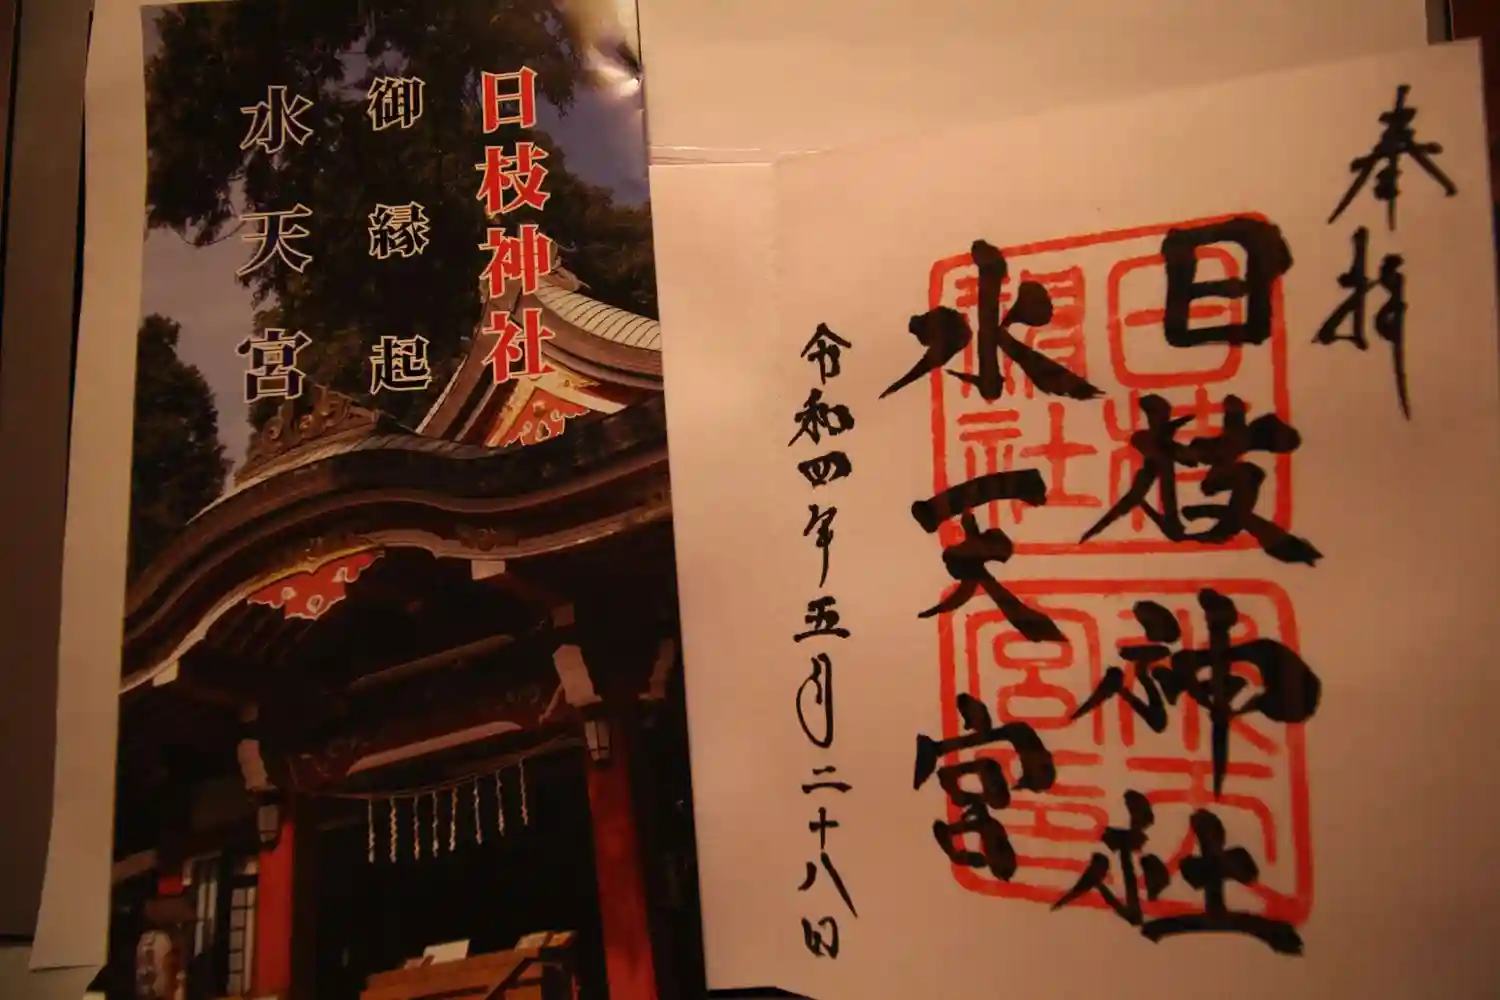 日枝神社
御縁起
水天宮
奉拝
日枝神社
水天宮
令和四年五月二十八日
日枝
神社
水天
宮印